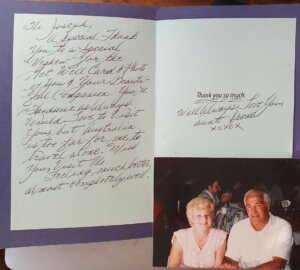 Hi Joseph,
A Special Thank
You to a Special
Nephew for the
Get Well Card & Photo
of You & Your Beauti-
ful Companion. You're
Handsome as always.
Would love to visit
Yous but Australia
is too far for me to
travel alone. Miss
You, Visit Us
Feeling much better,
almost completely well.
Thank you so much.
Will Always Love You
Aunt
xoxox